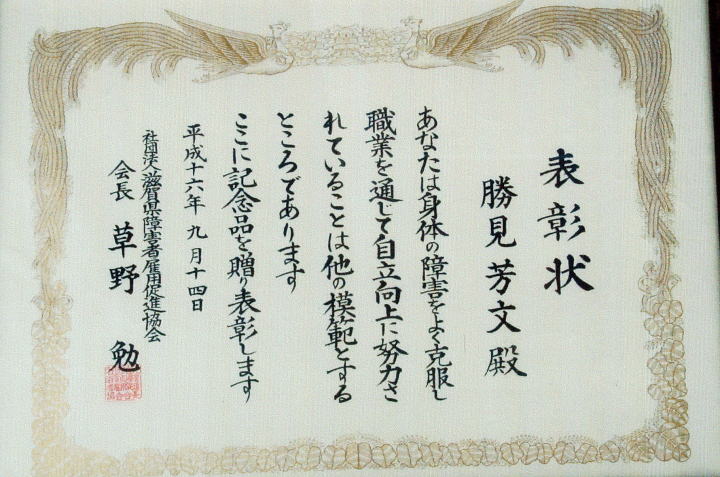 表彰状
勝見芳文殿
あなたは身体の障害をよく克服し
職業を通じて自立向上に努力さ
れていることは他の模範とする
ところであります
ここに記念品を贈り表彰します
平成十六年九月十四日
社団法人滋賀県障害者雇用促進協会
会長 草野 勉